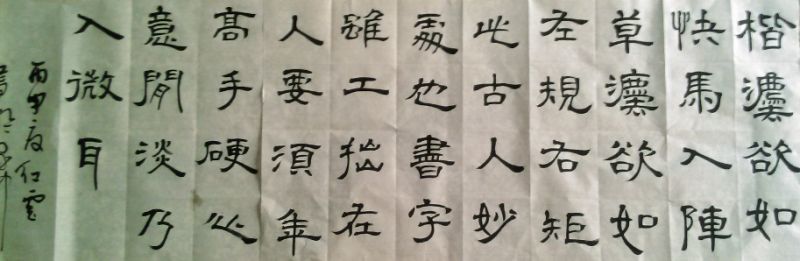 楷灋欲如
快馬入陣
草灋欲如
左規右矩
此古人妙
處也書字
雖工拙在
人要須年
高手硬心
意閒淡乃
入微耳
丙申夏